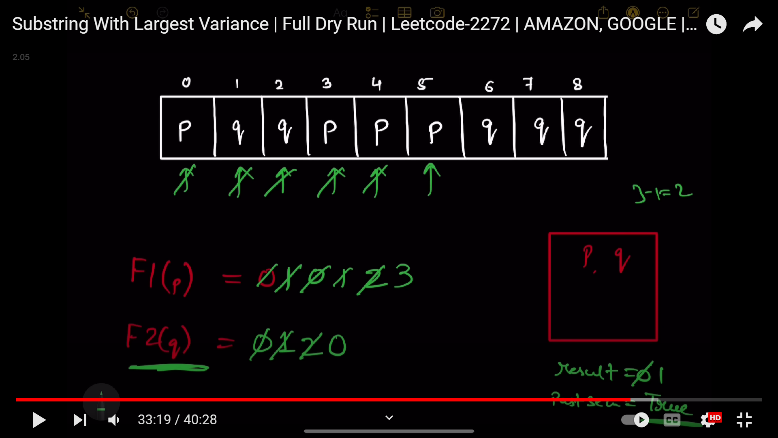 Substring With Largest Variance | Full Dry Run | Leetcode-2272 | AMAZON, GOOGLE |...
2.05
0 1 2 3 4 5 6 7 8
p q q p p p q q q
3-1=2
P, q
F1(p) = 0 1 0 1 2 3
F2(q) = 0 1 2 0
result = 0 1
Past seen = True
33:19 / 40:28
CC
HD